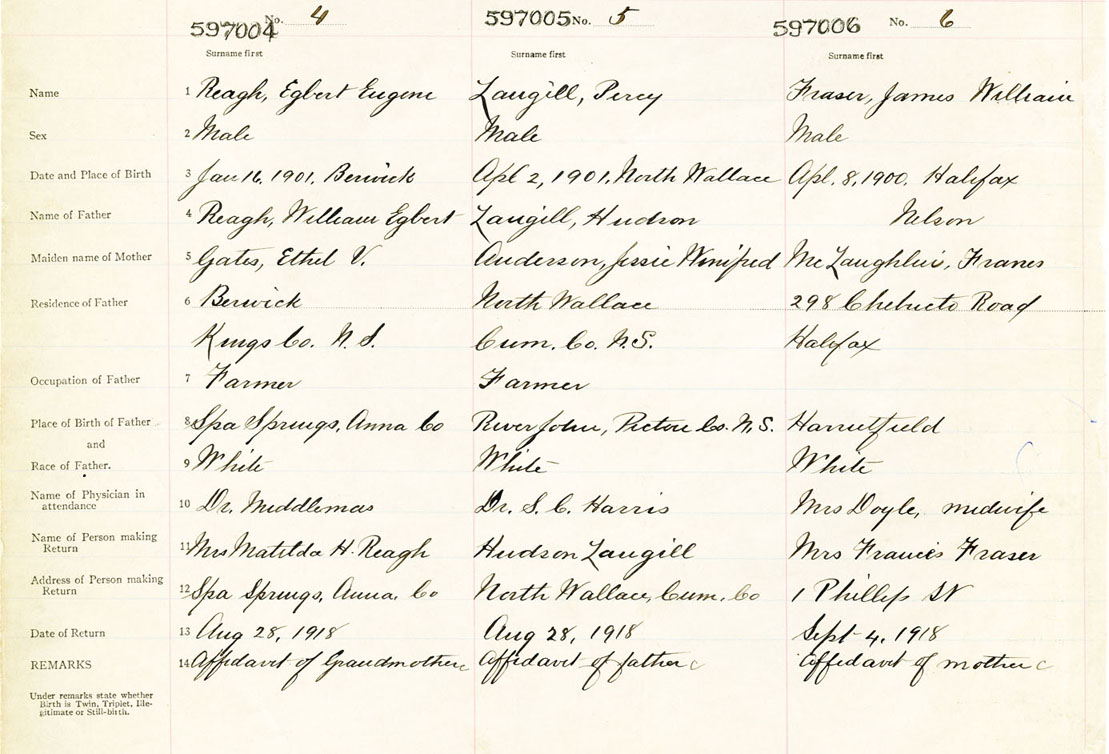 597004 No. 4 597005 No. 5 597006 No. 6
Surname first Surname first Surname first
Name 1 Reagh, Egbert Eugene Langill, Percy Fraser, James William
Sex 2 Male Male Male
Date and Place of Birth 3 Jan 16, 1901, Berwick Apl 2, 1901, North Wallace Apl. 8, 1900. Halifax
Name of Father 4 Reagh, William Egbert Langill, Hudson Nelson
Maiden name of Mother 5 Gates, Ethel V. Anderson, Jessie Winifred McLaughlin, Frances
Residence of Father 6 Berwick North Wallace 298 Chebucto Road
Kings Co. N. S. Cum. Co. N.S. Halifax
Occupation of Father 7 Farmer Farmer
Place of Birth of Father 8 Spa Springs, Anna Co River John, Pictou Co. N.S. Harrietfield
and
Race of Father. 9 White White White
Name of Physician in
attendance 10 Dr. Middlemas Dr. S. C. Harris Mrs Doyle, midwife
Name of Person making
Return 11 Mrs Matilda H. Reagh Hudson Langill Mrs Francis Fraser
Address of Person making
Return 12 Spa Springs, Anna. Co North Wallace, Cum. Co 1 Phillip St
Date of Return 13 Aug 28, 1918 Aug 28, 1918 Sept 4, 1918
REMARKS 14 Affidavit of Grandmother c Affidavit of father c Affidavit of mother c
Under remarks state whether
Birth is Twin, Triplet, Ille-
gitimate or Still-birth.